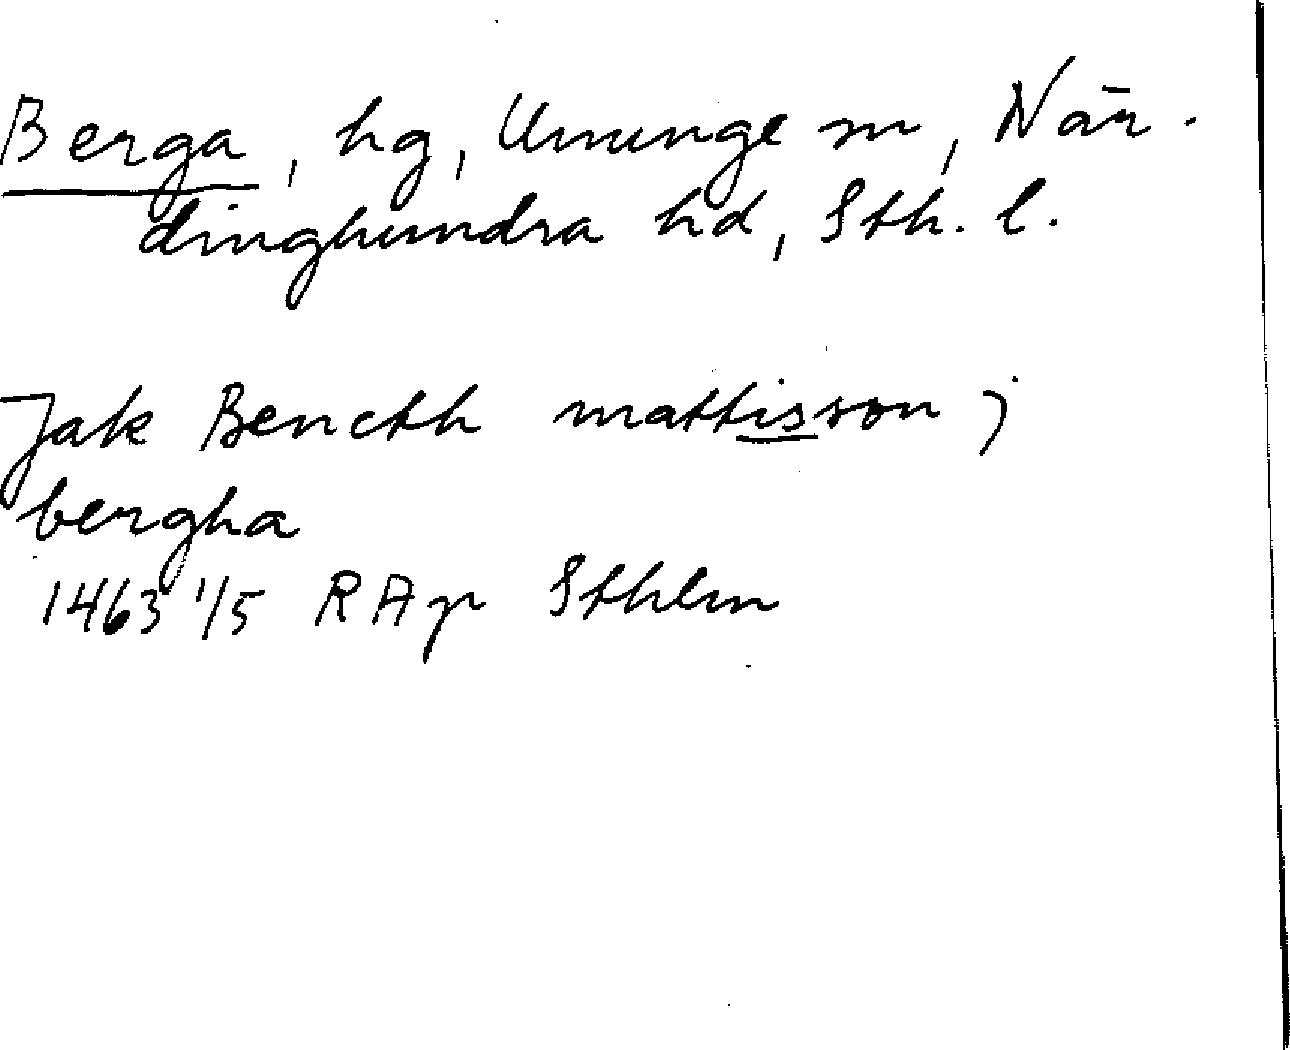 Berga, hg, Ununge sn, När-
dinghundra hd, Sth. l.
Jak Bencth mattisson j
bergha
1463 1/5 RAp Sthlm